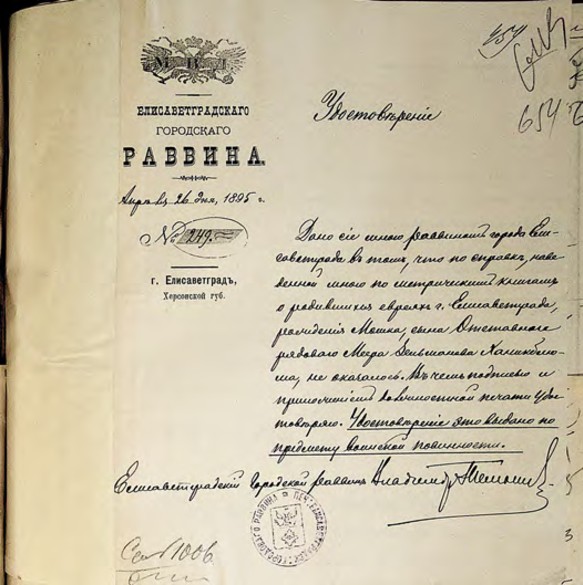 М В Д
ЕЛИСАВЕТГРАДСКАГО
ГОРОДСКАГО
РАВВИНА.
Апрѣля 26 дня, 1895 г.
№ 249.
г. Елисаветградъ,
Херсонской губ.
654
Удостовѣреніе
Дано сіе мною раввиномъ города Ели-
саветграда въ томъ, что по справкѣ, наве-
денной мною по метрическимъ книгамъ
о родившихся евреяхъ г. Елисаветграда,
рожденія Мошка, сына Отставного
рядового Меера
не оказалось. Въ чемъ подписью и
приложеніемъ должностной печати удос-
товѣряю. Удостовѣреніе это выдано по
предмету воинской повинности.
Елисаветградскій Городской раввинъ Владимір